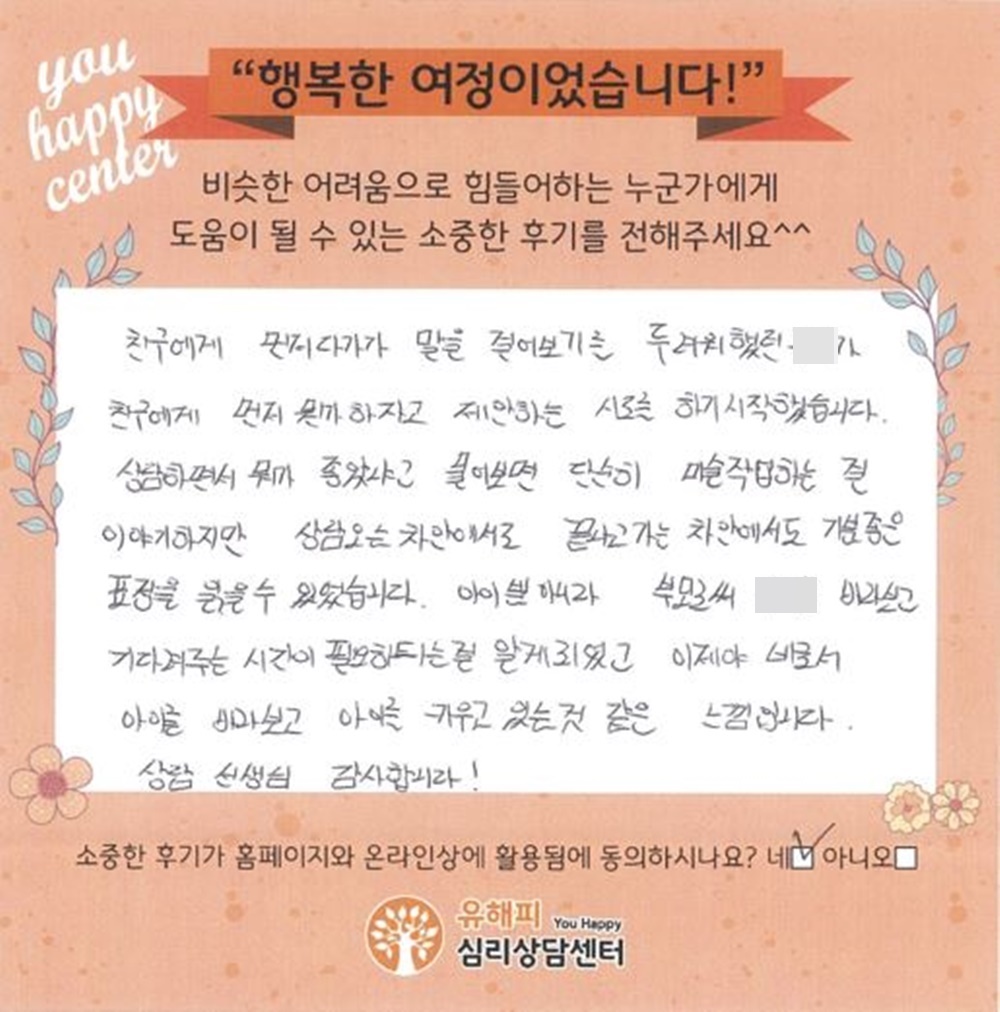 you
happy
center
“행복한 여정이었습니다!”
비슷한 어려움으로 힘들어하는 누군가에게
도움이 될 수 있는 소중한 후기를 전해주세요^^
친구에게 먼저다가가 말을 걸어보기는 두려워했던 가
친구에게 먼저 뭔가 하자고 제안하는 시도를 하기시작했습니다.
상담하면서 뭐가 좋았냐고 물어보면 단순히 미술작업하는 걸
이야기하지만 상담오는 차안에서도 끝나고가는 차안에서도 기분좋은
표정을 읽을수 있었습니다. 아이뿐 아니라 부모로써 바라보고
기다려주는 시간이 필요하다는걸 알게되었고 이제야 비로서
아이를 바라보고 아이를 키우고 있는것 같은 느낌입니다.
상담 선생님 감사합니다!
소중한 후기가 홈페이지와 온라인상에 활용됨에 동의하시나요? 네☑ 아니오□
유해피 You Happy
심리상담센터